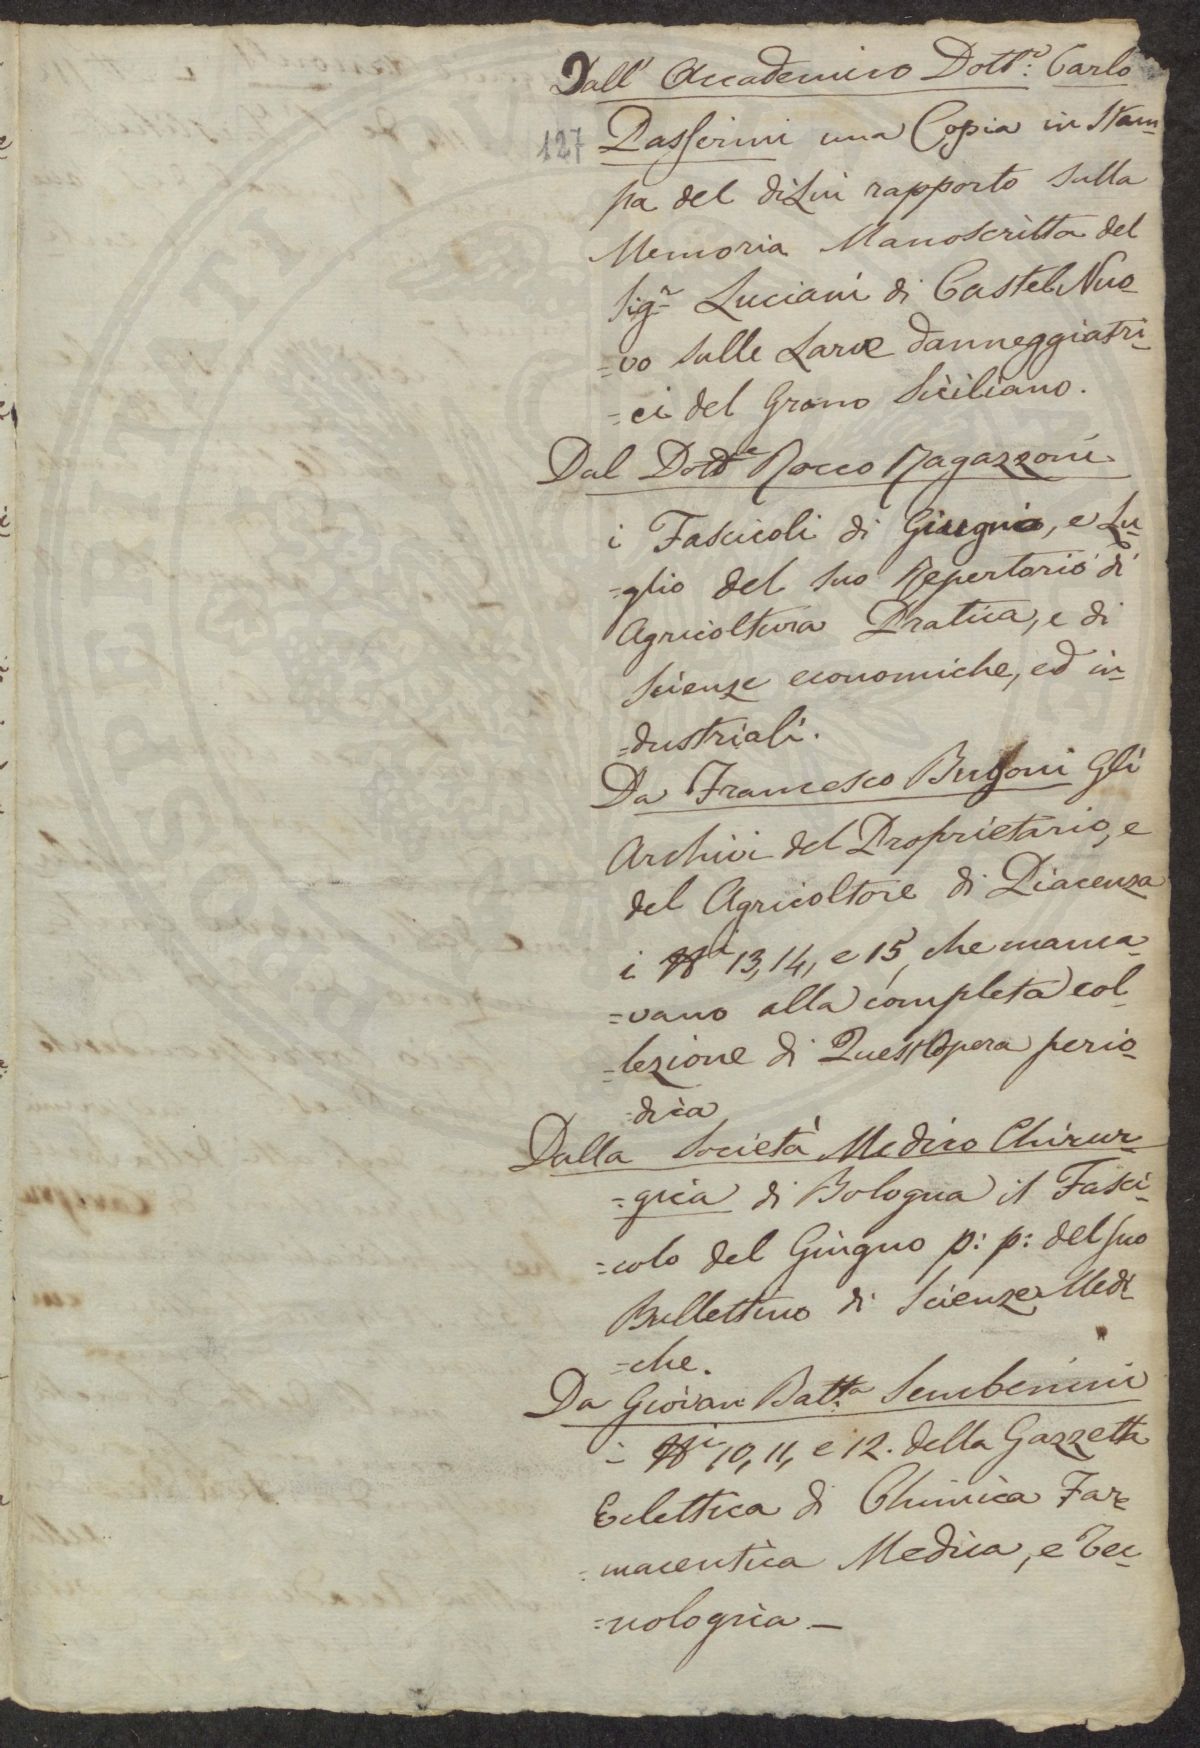 Dall' Accademico Dott.e: Carlo
127
Passerini una Copia in Stam=
pa del di Lui rapporto sulla
Memoria Manoscritta del
Sig.r Luciani di Castel Nuo=
=vo sulle Larve danneggiatri=
=ci del Grano Siciliano.
Dal Dott.e Rocco Ragazzoni
i Fascicoli di Giugnio, e Lu=
=glio del suo Repertorio di
Agricoltura Pratica, e di
Scienze economiche, ed in=
=dustriali.
Da Francesco Bugoni Gli
Archivi del Proprietario, e
del Agricoltore di Piacenza
i N.i 13, 14, e 15, che manca=
=vano alla completa col=
=lezione di Quest'Opera perio=
=dica
Dalla Società Medico Chirur=
=gica di Bologna il Fasci=
=colo del Giugno p: p: del suo
Bullettino di Scienze Medi=
=che.
Da Giovan Batt.a Sembenini
i N.i 10, 11, e 12. della Gazzetta
Eclettica di Chimica Far=
=maceutica Medica, e Tec=
=nologica —